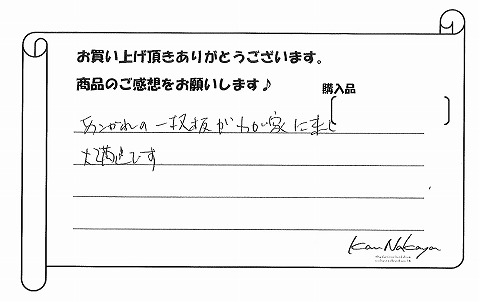 お買い上げ頂きありがとうございます。
商品のご感想をお願いします♪
購入品
あこがれの一枚板がわが家に来し
大満足です
Kan Nakaya